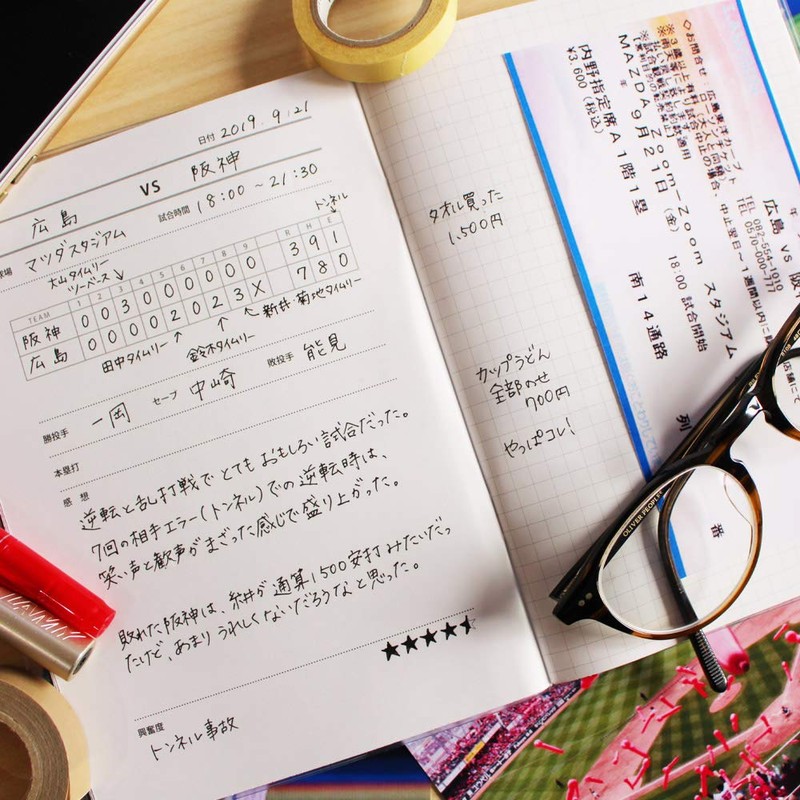 日付 2019.9.21
広島 VS 阪神
球場 マツダスタジアム 試合時間 18:00～21:30
大山タイムリー
ツーベース
トンネル
TEAM 1 2 3 4 5 6 7 8 9 R H E
阪神 0 0 3 0 0 0 0 0 0 3 9 1
広島 0 0 0 0 2 0 2 3 X 7 8 0
田中タイムリー 鈴木タイムリー 新井・菊地タイムリー
勝投手 一岡 セーブ 中崎 敗投手 能見
本塁打
感想
逆転と乱打戦でとてもおもしろい試合だった。
7回の相手エラー(トンネル)での逆転時は、
笑い声と歓声がまざった感じで盛り上がった。
敗れた阪神は、糸井が通算1500安打みたいだっ
たけど、あまりうれしくないだろうなと思った。
興奮度
トンネル事故
タオル買った
1,500円
カップうどん
全部のせ
700円
やっぱコレ!
広島 VS 阪
TEL 082-554-1010
MAZDA Zoom-Zoom スタジアム
9月21日(金) 18:00 試合開始
内野指定席A 1階1塁 南14通路 列 番
¥3,600(税込)
OLIVER PEOPLES